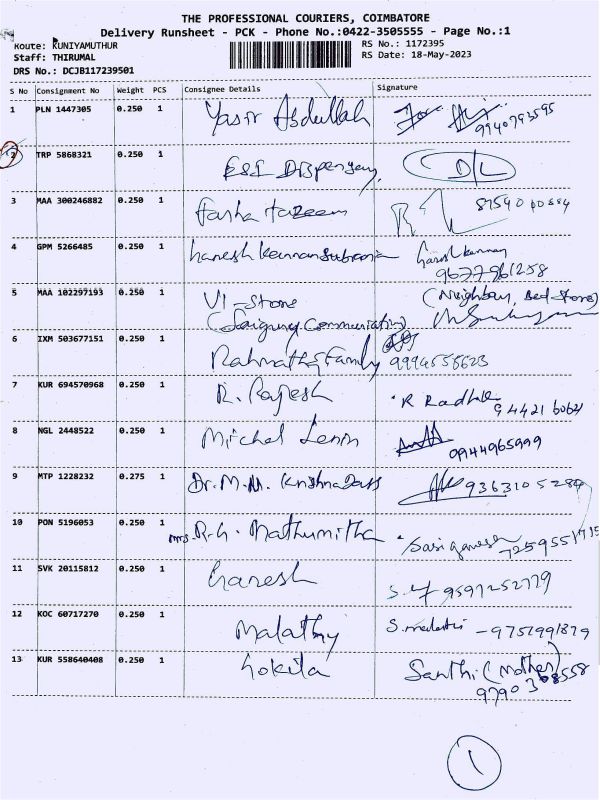 THE PROFESSIONAL COURIERS, COIMBATORE
Delivery Runsheet - PCK - Phone No.:0422-3505555 - Page No.:1
Route: KUNIYAMUTHUR
RS No.: 1172395
Staff: THIRUMAL
RS Date: 18-May-2023
DRS No.: DCJB117239501
S No Consignment No Weight PCS Consignee Details Signature
1 PLN 1447305 0.250 1 Yasir Abdullah
9940793595
2 TRP 5868321 0.250 1 ESI Dispensary D/L
3 MAA 300246882 0.250 1 Farha tazeem
4 GPM 5266485 0.250 1
9677961258
5 MAA 102297193 0.250 1 VI-Store (Neighbour, Bed Stores)
6 IXM 503677151 0.250 1 Family 9994555623
7 KUR 694570968 0.250 1 R. Rajesh R Radha
8 NGL 2448522 0.250 1 Michel Lenin
09944965999
9 MTP 1228232 0.275 1 Dr. M.M. Krishna Dass
10 PON 5196053 0.250 1 Mrs. R.G. Mathumitha
11 SVK 20115812 0.250 1 Ganesh
12 KOC 60717270 0.250 1 Malathy
13 KUR 558640408 0.250 1 Gokila Santhi (Mother)
1